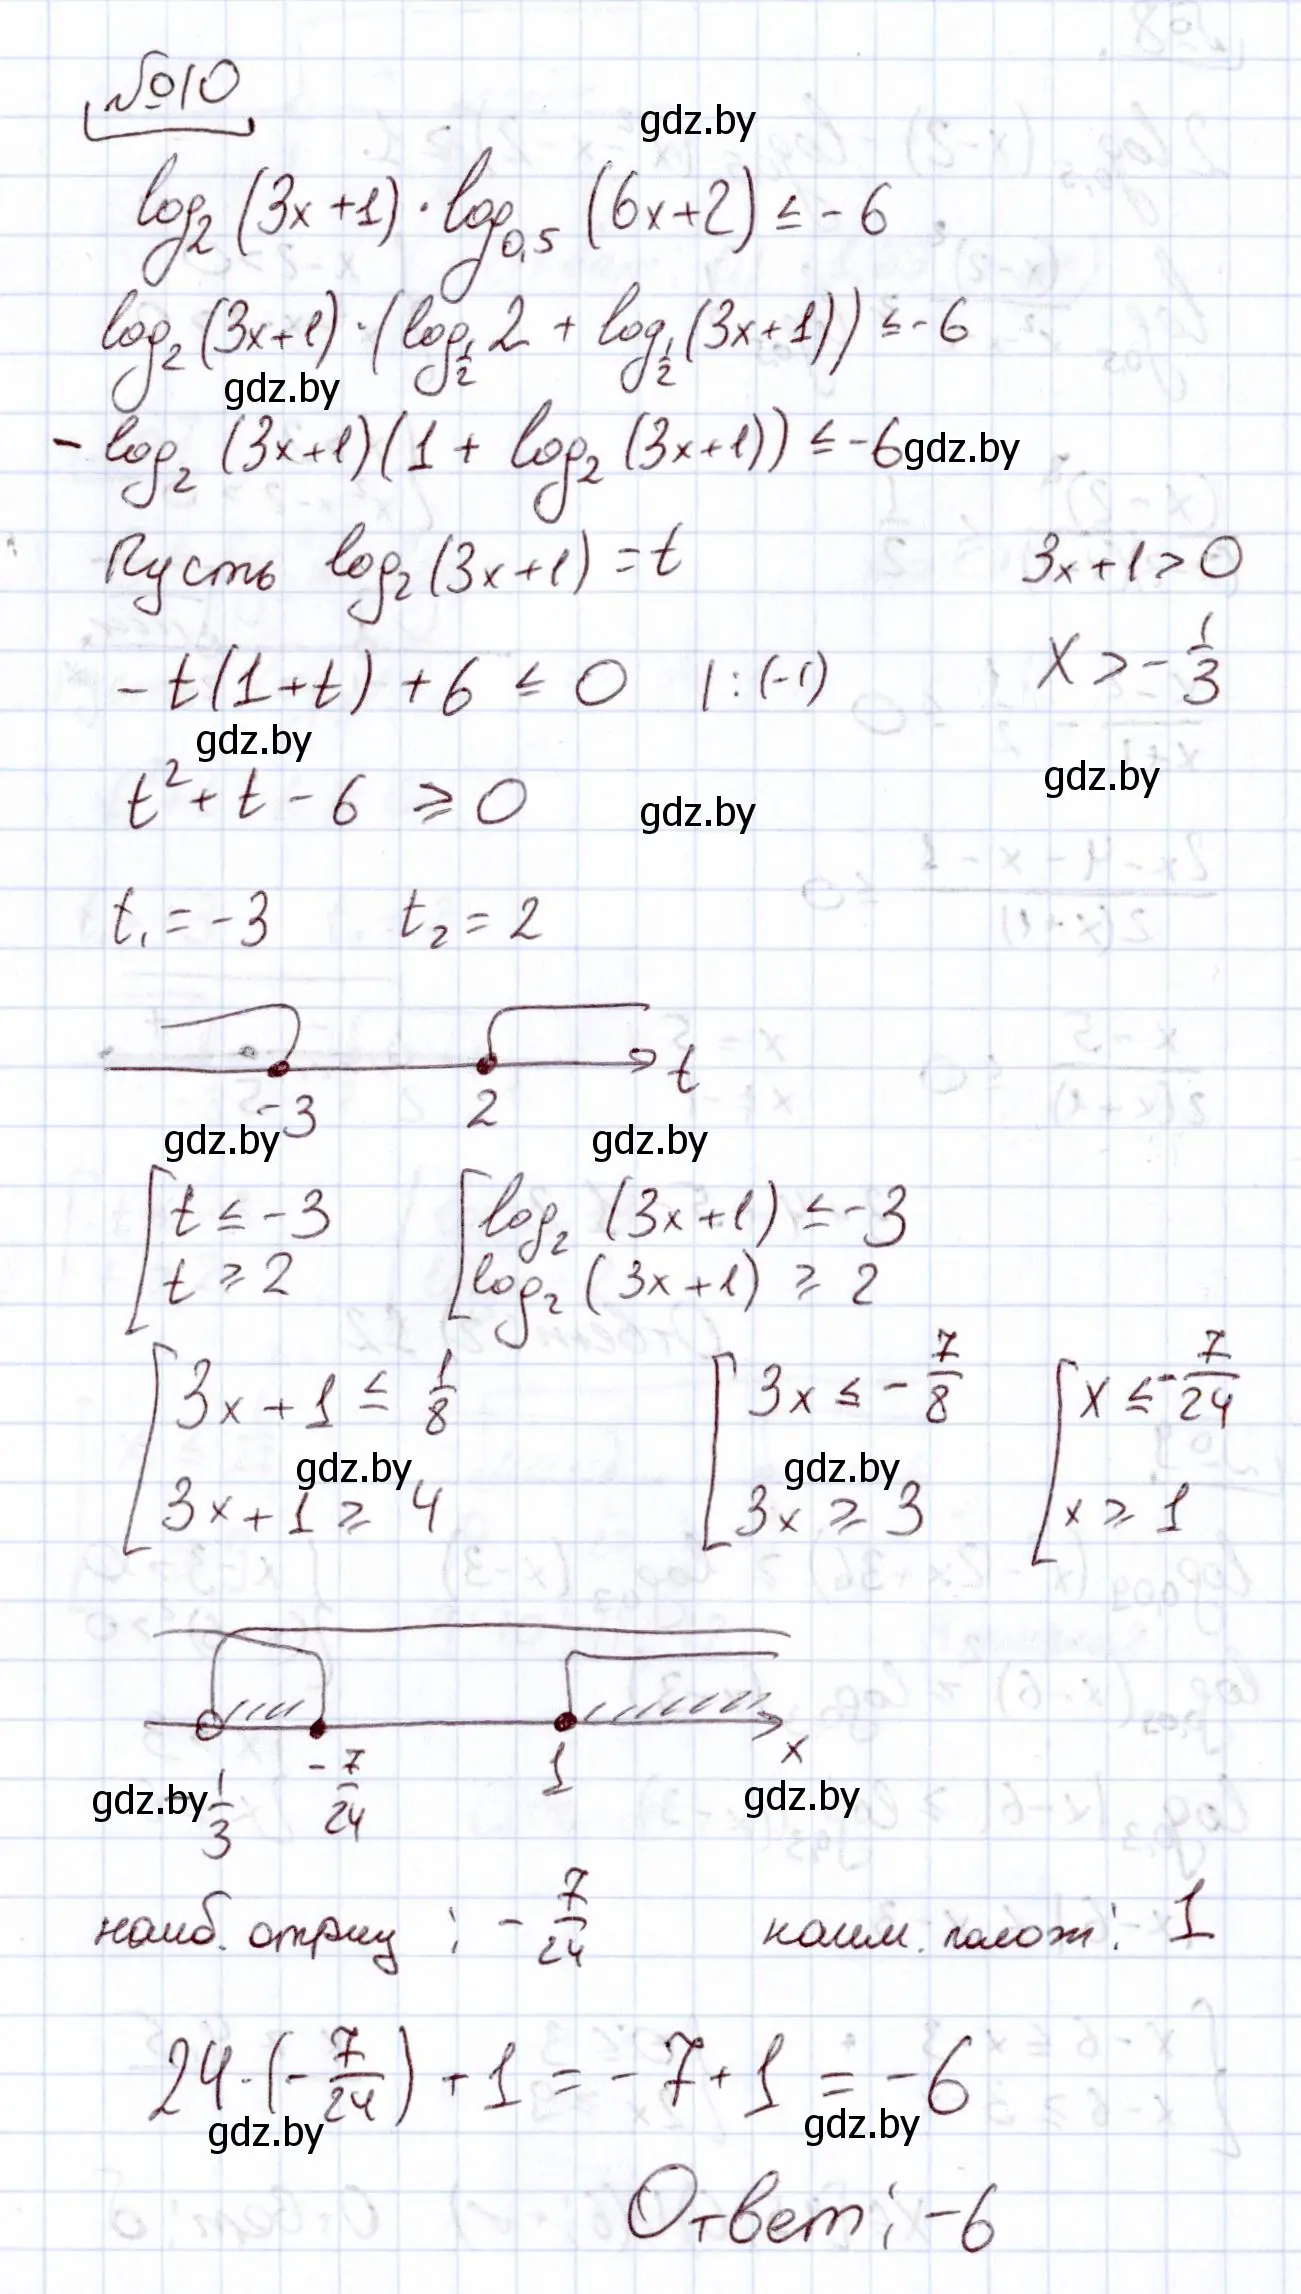 №10
gdz.by
log₂(3x+1)·log₀,₅(6x+2) ≤ -6
log₂(3x+1)·(log_{1/2} 2 + log_{1/2}(3x+1)) ≤ -6
gdz.by
-log₂(3x+1)(1 + log₂(3x+1)) ≤ -6 gdz.by
Пусть log₂(3x+1) = t 3x+1 > 0
-t(1+t) + 6 ≤ 0 |:(-1) x > -1/3
gdz.by gdz.by
t² + t - 6 ≥ 0 gdz.by
t₁ = -3 t₂ = 2
t
-3 2
gdz.by gdz.by
[t ≤ -3 [log₂(3x+1) ≤ -3
t ≥ 2 log₂(3x+1) ≥ 2
[3x+1 ≤ 1/8 [3x ≤ -7/8 [x ≤ -7/24
gdz.by gdz.by
3x+1 ≥ 4 3x ≥ 3 x ≥ 1
x
-1/3 -7/24 1
gdz.by gdz.by
наиб. отриц: -7/24 наим. полож: 1
24·(-7/24) + 1 = -7 + 1 = -6
gdz.by gdz.by
Ответ: -6